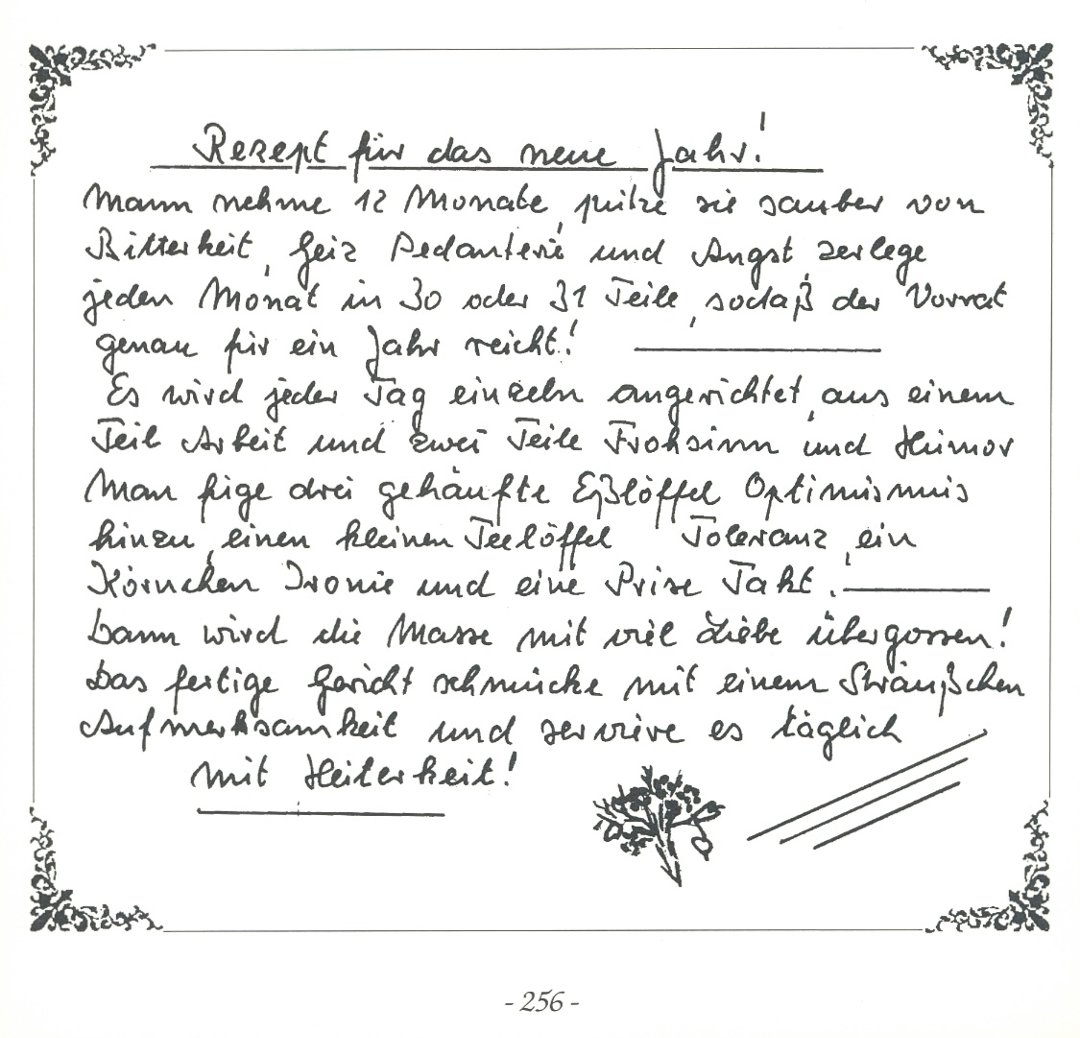 Rezept für das neue Jahr!
Mann nehme 12 Monate, putze sie sauber von
Bitterkeit, Geiz Pedanterie und Angst, zerlege
jeden Monat in 30 oder 31 Teile, sodaß der Vorrat
genau für ein Jahr reicht!
Es wird jeder Tag einzeln angerichtet, aus einem
Teil Arbeit und zwei Teile Frohsinn und Humor
Man füge drei gehäufte Eßlöffel Optimismus
hinzu, einen kleinen Teelöffel Toleranz, ein
Körnchen Ironie und eine Prise Takt.
Dann wird die Masse mit viel Liebe übergossen!
Das fertige Gericht schmücke mit einem Sträußchen
Aufmerksamkeit und serviere es täglich
mit Heiterkeit!
- 256 -